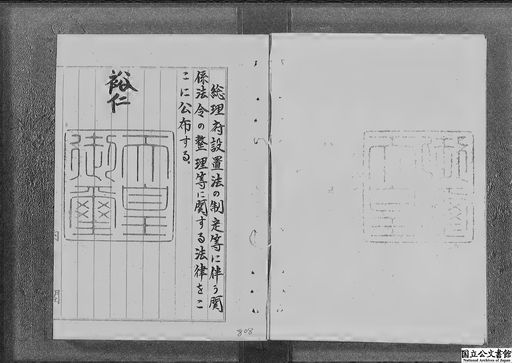 総理府設置法の制定等に伴う関
係法令の整理等に関する法律をこ
こに公布する
裕仁
天皇
御璽
808
国立公文書館
National Archives of Japan